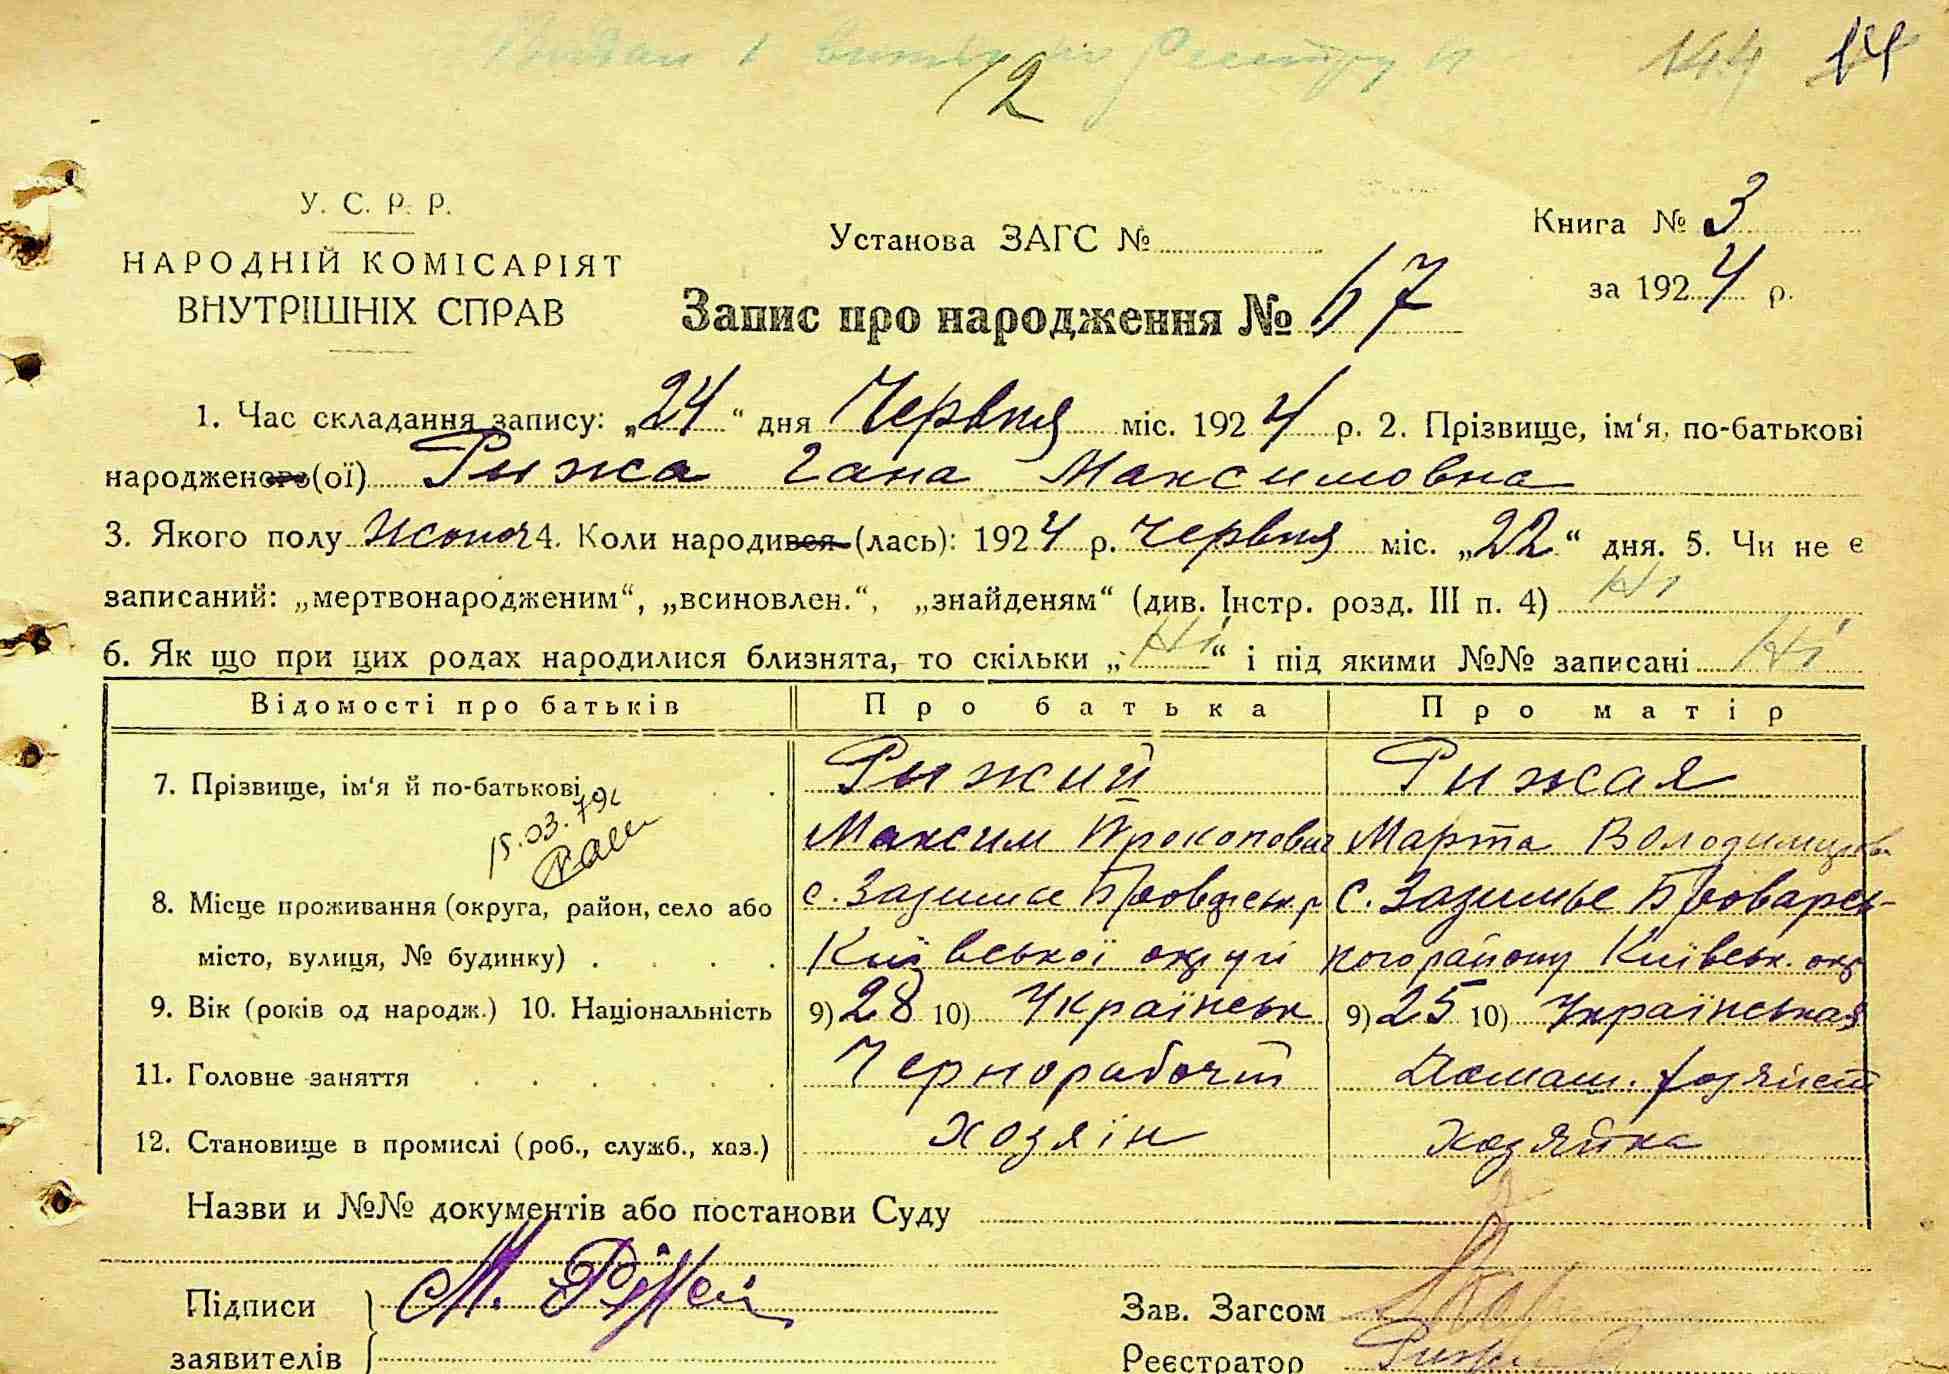 12
144 14
У. С. Р. Р.
НАРОДНІЙ КОМІСАРІЯТ
ВНУТРІШНІХ СПРАВ
Установа ЗАГС №
Книга № 3
за 1924 р.
Запис про народження № 67
1. Час складання запису: „24“ дня Червня міс. 1924 р. 2. Прізвище, ім‘я, по-батькові
народженого(ої) Рижа Гана Максимовна
3. Якого полу Жоноч 4. Коли народився (лась): 1924 р. Червня міс. „22“ дня. 5. Чи не є
записаний: „мертвонародженим“, „всиновлен.“, „знайденям“ (див. Інстр. розд. III п. 4) Ні
6. Як що при цих родах народилися близнята, то скільки „Ні“ і під якими №№ записані Ні
Відомості про батьків Про батька Про матір
7. Прізвище, ім‘я й по-батькові Рыжий Рижая
Максим Прокопович Марта
15.03.
8. Місце проживання (округа, район, село або с. Зазимье с. Зазимье Броварсь-
місто, вулиця, № будинку) Київської округи кого району Київськ. окр
9. Вік (років од народж.) 10. Національність 9) 28 10) Українськ 9) 25 10) Українськая
11. Головне заняття Чернорабочий Домаш. хозяйст
12. Становище в промислі (роб., служб., хаз.) хозяін хозяйка
Назви и №№ документів або постанови Суду
Підписи М. Зав. Загсом
заявителів Реєстратор